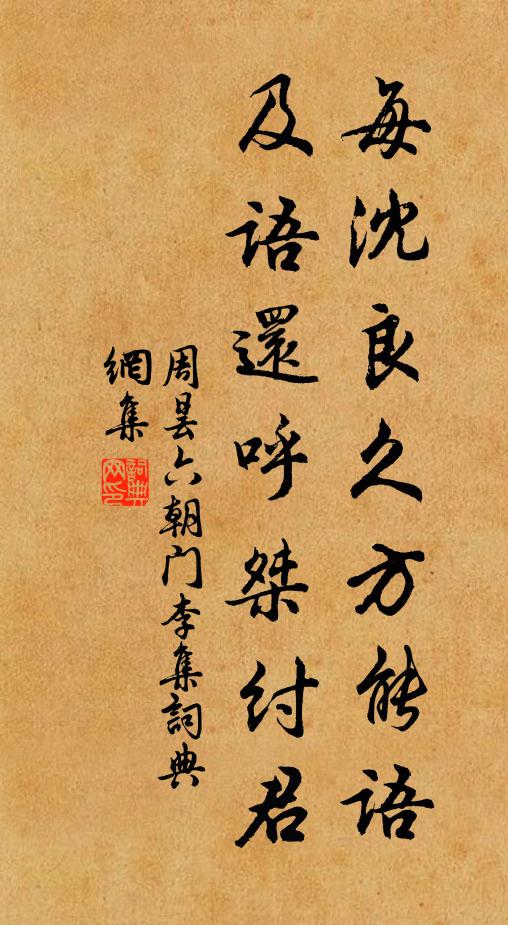 每沈良久方能语
及語還呼桀纣君
周昙六朝门李集詞典
網集
詞典
网印